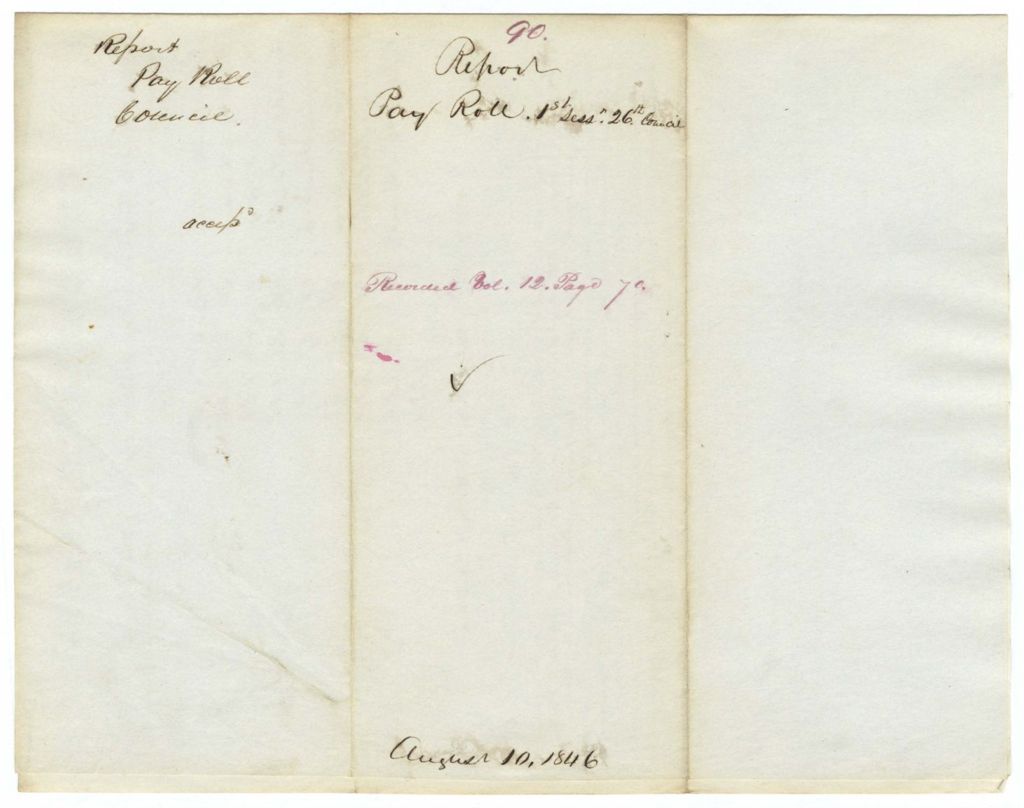 Report
Pay Roll
Council.
accepd
90.
Report
Pay Roll. 1st Sessn. 26th Council
Recorded Vol. 12. Page 70.
August 10, 1846